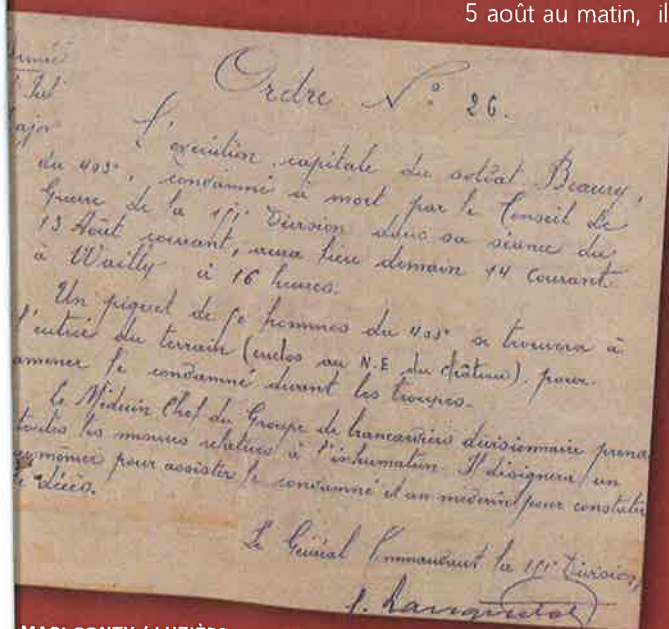 5 août au matin, il
Armée
Major
Ordre N° 26.
L'exécution capitale du soldat Beaury,
du 403e, condamné à mort par le Conseil de
Guerre de la 151e Division dans sa séance du
13 Août courant, aura lieu demain 14 courant
à Wailly à 16 heures.
Un piquet de 50 hommes du 403e se trouvera à
l'entrée du terrain (enclos au N.E. du château), pour
amener le condamné devant les troupes.
Le Médecin Chef du Groupe de brancardiers divisionnaire prendra
toutes les mesures relatives à l'inhumation. Il désignera un
aumônier pour assister le condamné et un médecin pour constater
le décès.
Le Général Commandant la 151e Division,